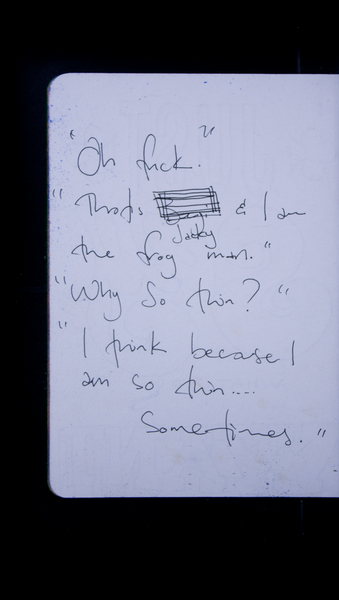 "Oh fuck."
"Thats Jacky & I am
the frog man."
"Why So thin?"
"I think becase I
am so thin....
Sometimes."